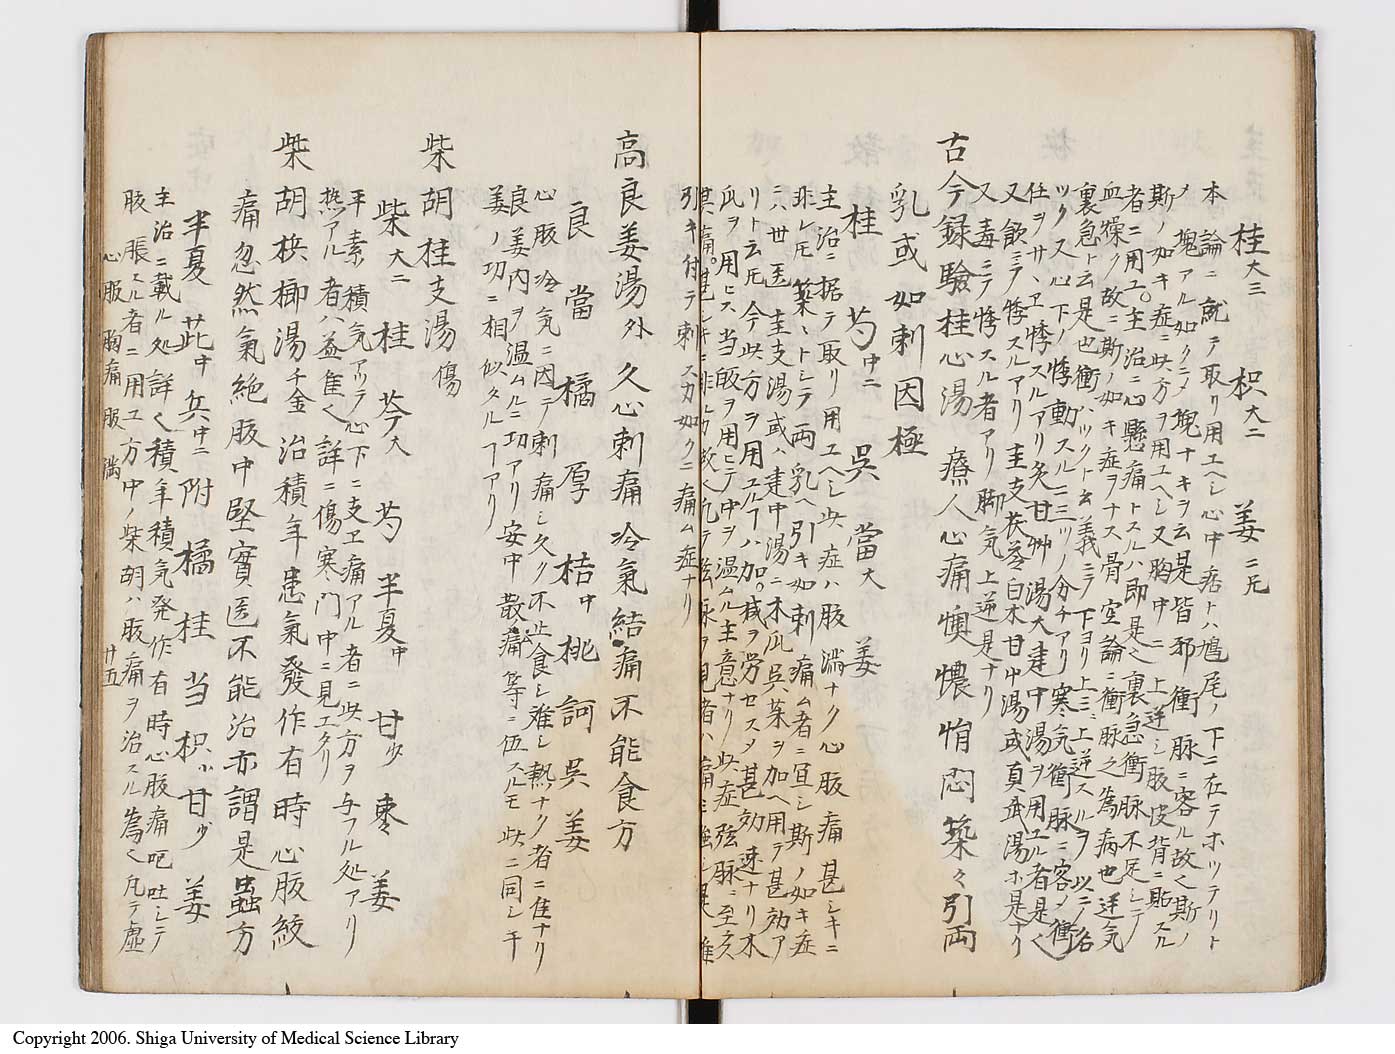 桂大三 枳大二 姜二尤
本論ニ就テ取リ用エヘシ心中痞トハ鳩尾ノ下ニ在テホツテリト
メ塊アル如クニメ塊ナキヲ云是皆邪衝脉ニ客ル故く斯ノ
斯ノ如キ症ニ此方ヲ用エヘシ又胸中ニ上逆シ腹皮背ニ貼スル
者ニ用エ。主治ニ心懸痛トスルハ即是く裏急衝脉不足シテ
血燥ク故ニ斯ノ如キ症ヲナス骨空論ニ衝脉之為病也逆気
裏急ト云是也衝ハツクト云義ニテ下ヨリ上ニ上逆スルヲ以ニノ名
ツク又心下ノ悸動スルニ三ツノ分チアリ寒気衝脉ニ容メ衝
任ヲサヽエ悸スルアリ炙甘艸湯大建中湯ヲ用エル者是く
又飲ニテ悸スルアリ圭支茯苓白木甘中湯或真武湯ホ是ナリ
又毒ニテ悸スル者アリ脚気上逆是ナリ
古今録驗桂心湯 療人心痛懊憹悁悶築々引両
乳或如刺困極
桂 芍中二 呉 當大 姜
主治ニ据テ取リ用エヘシ此症ハ腹満ナク心腹痛甚シキニ
非レ𪜈築ミトシテ両乳ヘ引キ如刺痛ム者ニ宣シ斯ノ如キ症
ニハ世医圭支湯或ハ建中湯ニ木瓜呉茱ヲ加ヘ用ラ甚効ア
リト云𪜈今此方ヲ用エルヿハ加。減ヲ労セスメ甚効速ナリ木
瓜ヲ用ヒス当皈ヲ用ヒテ中ヲ温ムル主意ナリ此症弦脉ニ至ラス
其痛。甚シキニ非ル故く凡テ弦脉ヲ見者ハ痛ミ強シ是
引キ付テ刺スカ如クニ痛ム症ナリ
高良姜湯外 久心刺痛冷氣結痛不能食方
良 當 橘 厚 桔中 桃 訶 呉 姜
心腹冷気ニ因テ刺痛シ久ク不止食シ难シ熱ナク者ニ隹ナリ
良姜内ヲ温ムルニ功アリ安中散痛等ニ伍スルモ此ニ同シ干
姜ノ功ニ相似タルヿアリ
柴胡桂支湯傷
柴大二 桂 芩大 芍 半夏中 甘少 棗 姜
平素積気アリテ心下ニ支エ痛アル者ニ此方ヲ与フル処アリ
熱アル者ハ益隹く詳ニ傷寒門中ニ見エタリ
柴胡梹榔湯千金 治積年患氣發作有時心腹絞
痛忽然氣絶腹中堅實医不能治亦謂是蟲方
半夏 茈中 兵中二 附 橘 桂 当 枳小 甘少 姜
主治ニ載ル処詳く積年積気発作有時心腹痛吧吐シテ
腹脹スル者ニ用エ方中ノ柴胡ハ腹痛ヲ治スル為く凡テ虚
心腹胸痛腹満 廿五